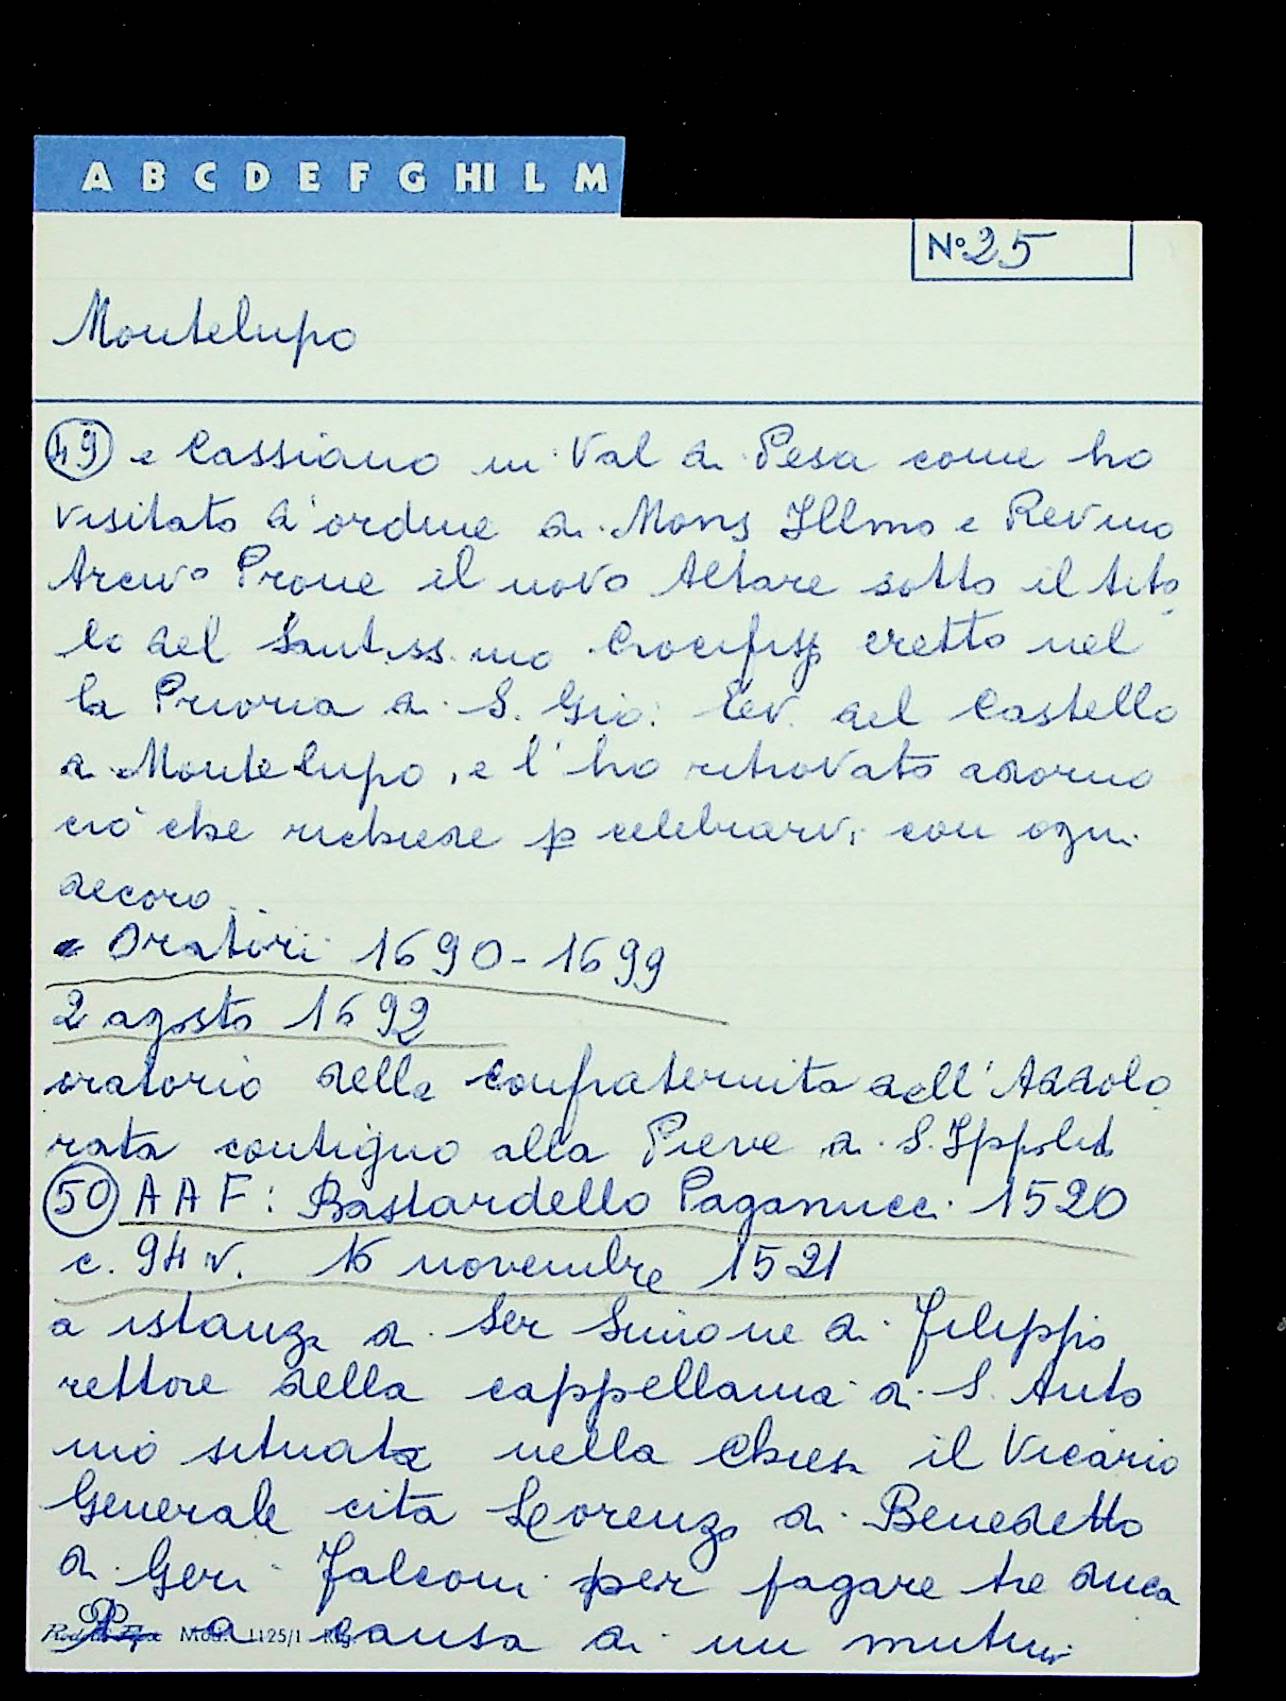 A B C D E F G HI L M
N° 25
Montelupo
49 e Cassiano in Val di Pesa come ho
visitato d'ordine di Mons Illmo e Revmo
Arciv° Prone il novo Altare sotto il tito
lo del Santissimo Crocifisso eretto nel
la Prioria di S. Gio: Ev. del Castello
di Montelupo, e l'ho ritrovato adorno
ciò che richiede p celebrarvi con ogni
decoro.
Oratori 1690-1699
2 agosto 1692
oratorio della confraternita dell'Addolo
rata contiguo alla Pieve di S. Ippolito
50 AAF: Bastardello Paganucci 1520
c. 94 v. 16 novembre 1521
a istanza di Ser Simone di Filippo
rettore della cappellania di S. Anto
nio situata nella Chiesa il Vicario
Generale cita Lorenzo di Benedetto
di Geri Falconi per pagare tre duca
a causa di un mutuo
Mod. 1125/1